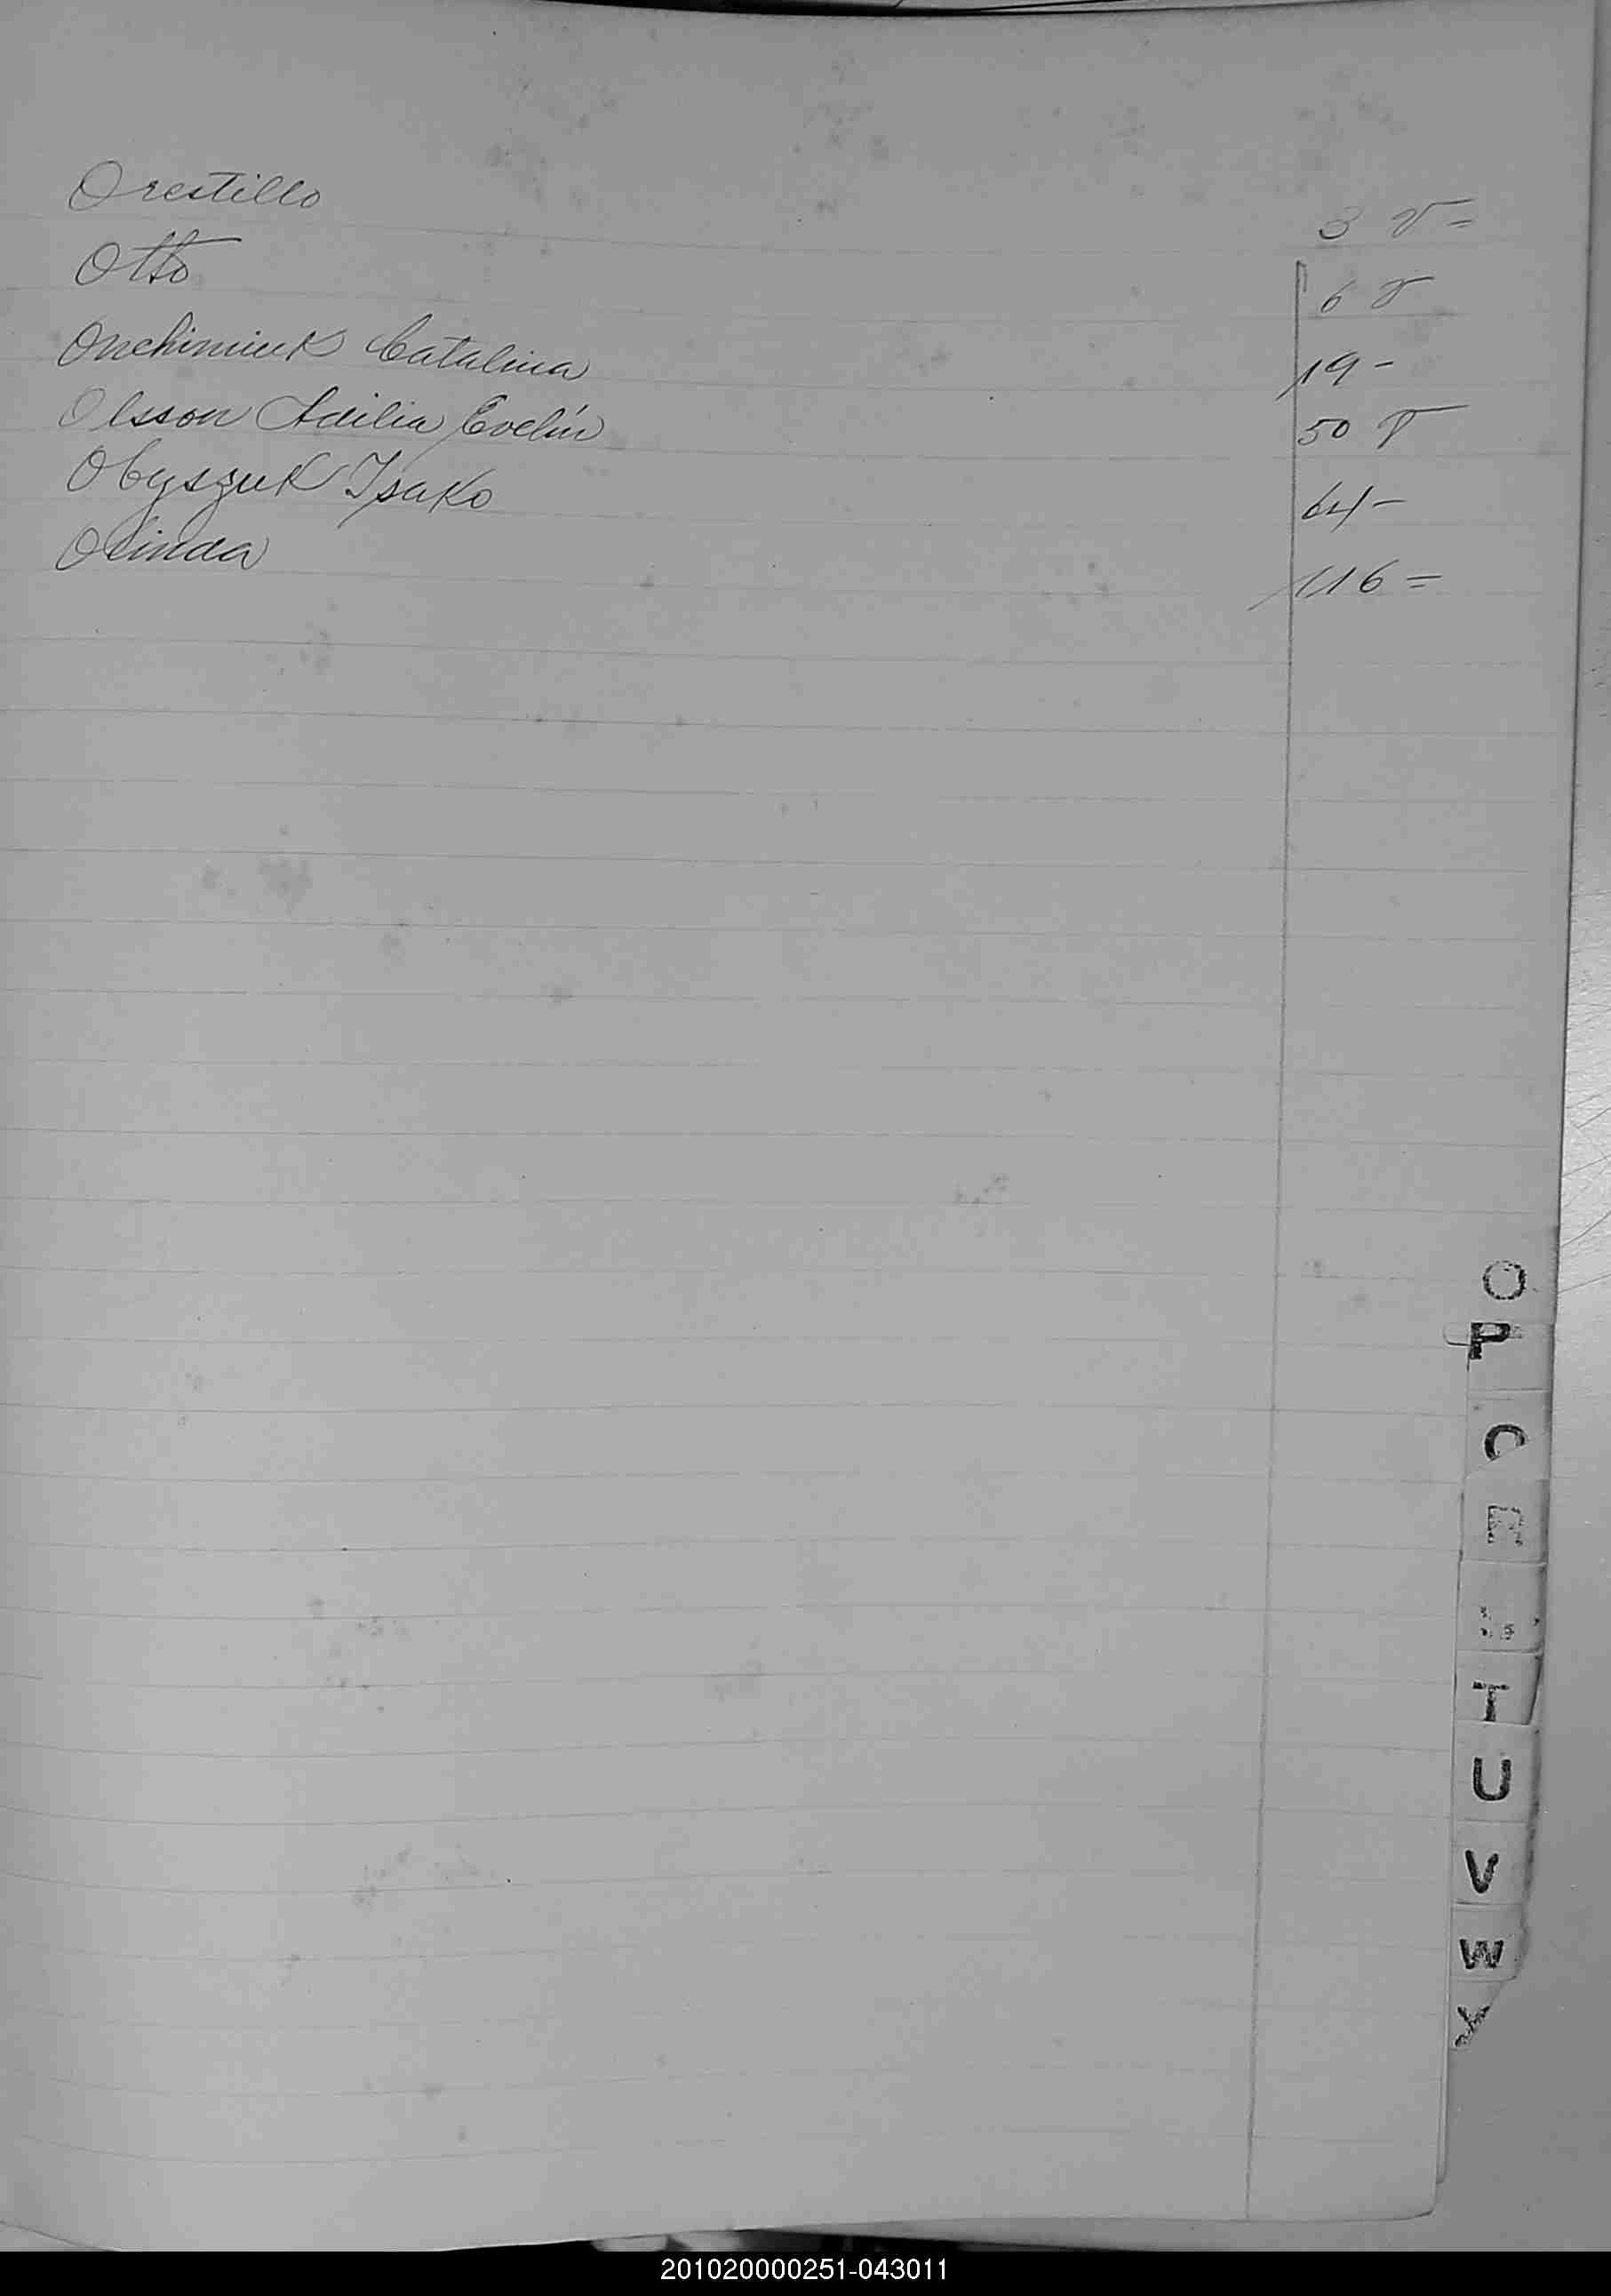 Orestillo 3 V=
Otto 6 V
Onchimiuk Catalina 19-
Olsson Adilia Evelín 50 V
Obyszuk Isako 64-
Olinda 116=
O
P
R
T
U
V
W
X
201020000251-043011